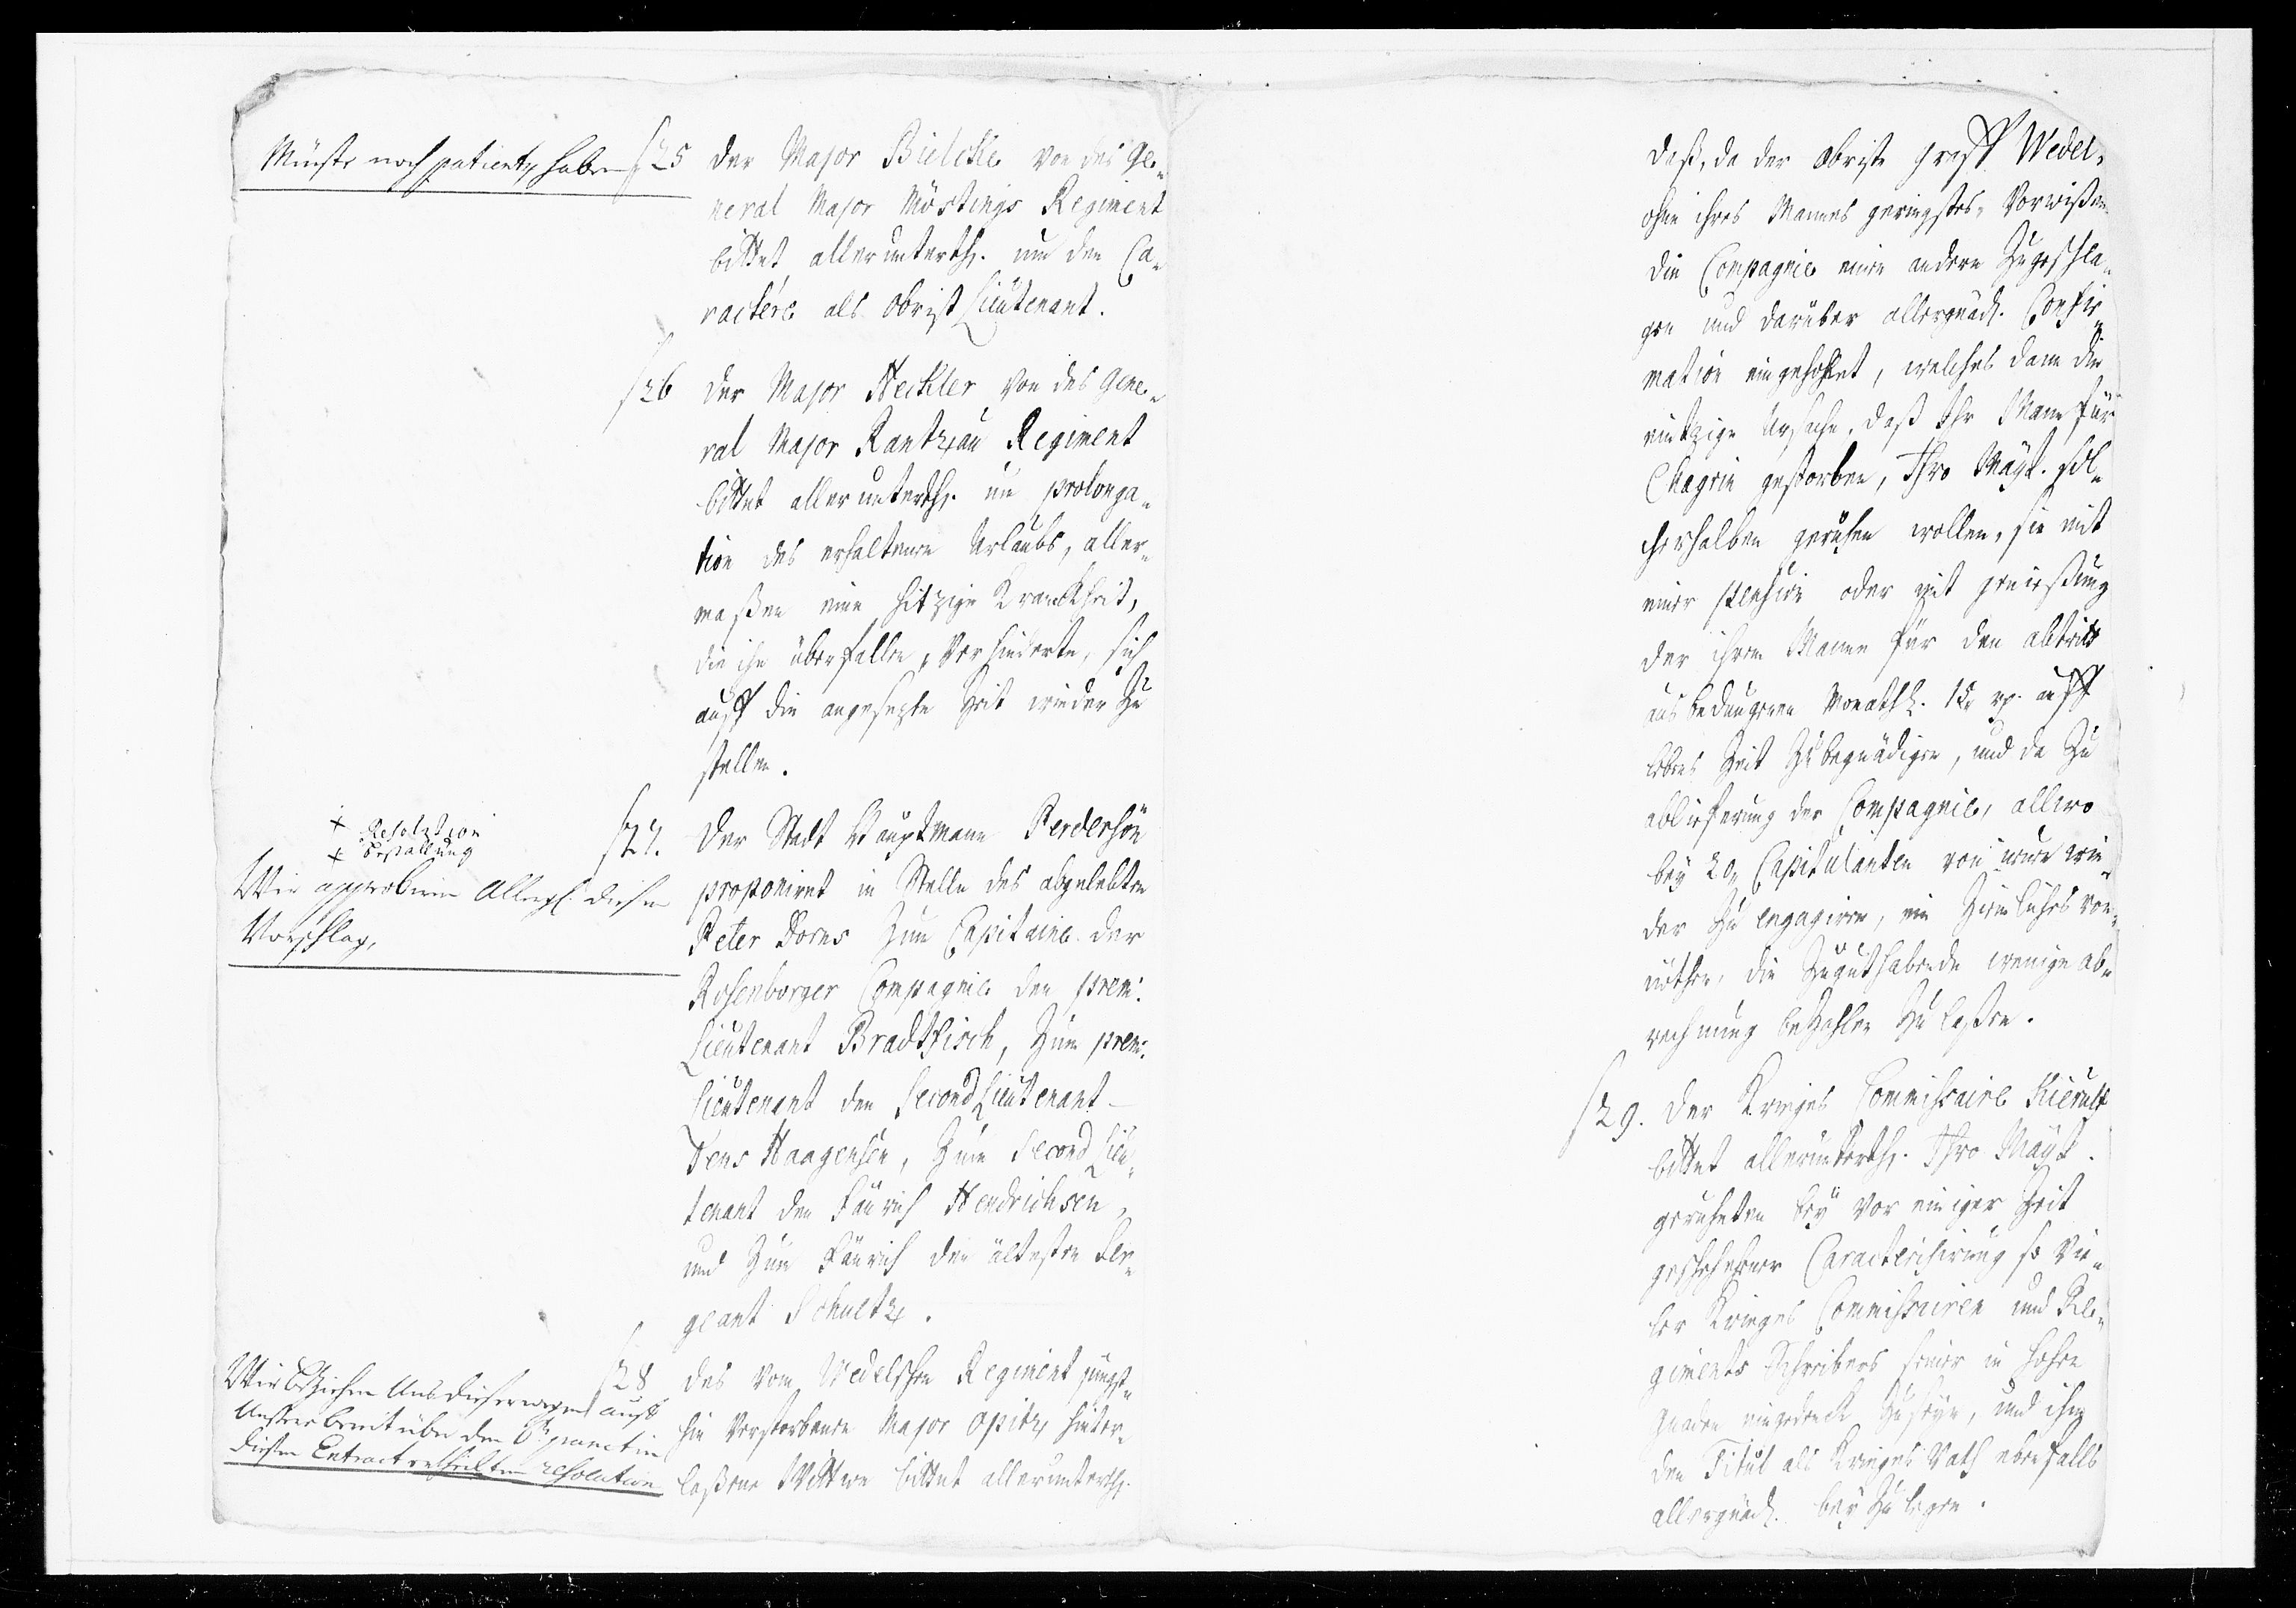 Müste noch patientz haben
§ 25 Der Major Bielcke von des Ge-
neral Major Möstings Regiment
bittet allerunterth. um den Ca-
ractére als Obrist Lieutenant.
§ 26 Der Major Heckler von des Gene-
ral Major Rantzau Regiment
bittet allerunterth. um prolonga-
tion des erhaltenen Urlaubs, aller-
maßen eine hitzige Kranckheit,
die ihn überfallen, verhinderte, sich
auff die angesezte Zeit wieder zu
stellen.
+ Resolution
+ Bestallung
Wir approbiren Allergn. diesen
Vorschlag,
§ 27. Der Stadt Hauptmann Pedersön
proponiret in Stelle des abgelebten
Peter Dorns zum Capitaine der
Rosenborger Compagnie den prem:
Lieutenant Bradtfisch, zum prem:
Lieutenant den Second Lieutenant
Jens Haagensen, zum Second Lieu-
tenant den Fänrich Hendrichsen,
und zum Fänrich den ältesten Ser-
geant Schultz.
Wir beziehen Uns dieserwegen auff
Unsere bereit über den 6ten punct in
diesem Extract ertheilten resolution
§ 28 Des vom Wedelschen Regiment jüngst-
hin verstorbenen Major Opitz hinter-
laßene Wittwe bittet allerunterth.
daß, da der Obriste Graff Wedel,
ohne ihres Mannes geringstes Vorwißen
die Compagnie einen andern zugeschla-
gen und darüber allergnäd. Confir-
mation eingehohlet, welches dann die
eintzige Ursache, daß Ihr Mann für
Chagrin gestorben, Ihro Mayt. sol-
cherhalben geruhen wollen, sie mit
einer pension oder mit genießung
der ihrem Manne für den abtritt
ausbedungenen Monathl. 15 rp. auff
lebens Zeit zu begnädigen, und da zu
ablieferung der Compagnie, allwo
bey 20 Capitulanten von neuen wie-
der zu engagiren, ein Ziemliches von-
nöthen, die Zuguthabende wenige ab-
rechnung bezahlen zu laßen.
§ 29. Der Krieges Commissaire Kierulf
bittet allerunterth. Ihro Mayt.
geruheten bey vor einiger Zeit
geschehener Caracterisirung so vie-
ler Krieges Commissairen und Re-
giments Schreibers seiner in hohen
Gnaden eingedenck zu seyn, und ihm
den Titul als Krieges Rath ebenfalls
allergnäd. bey zu legen.